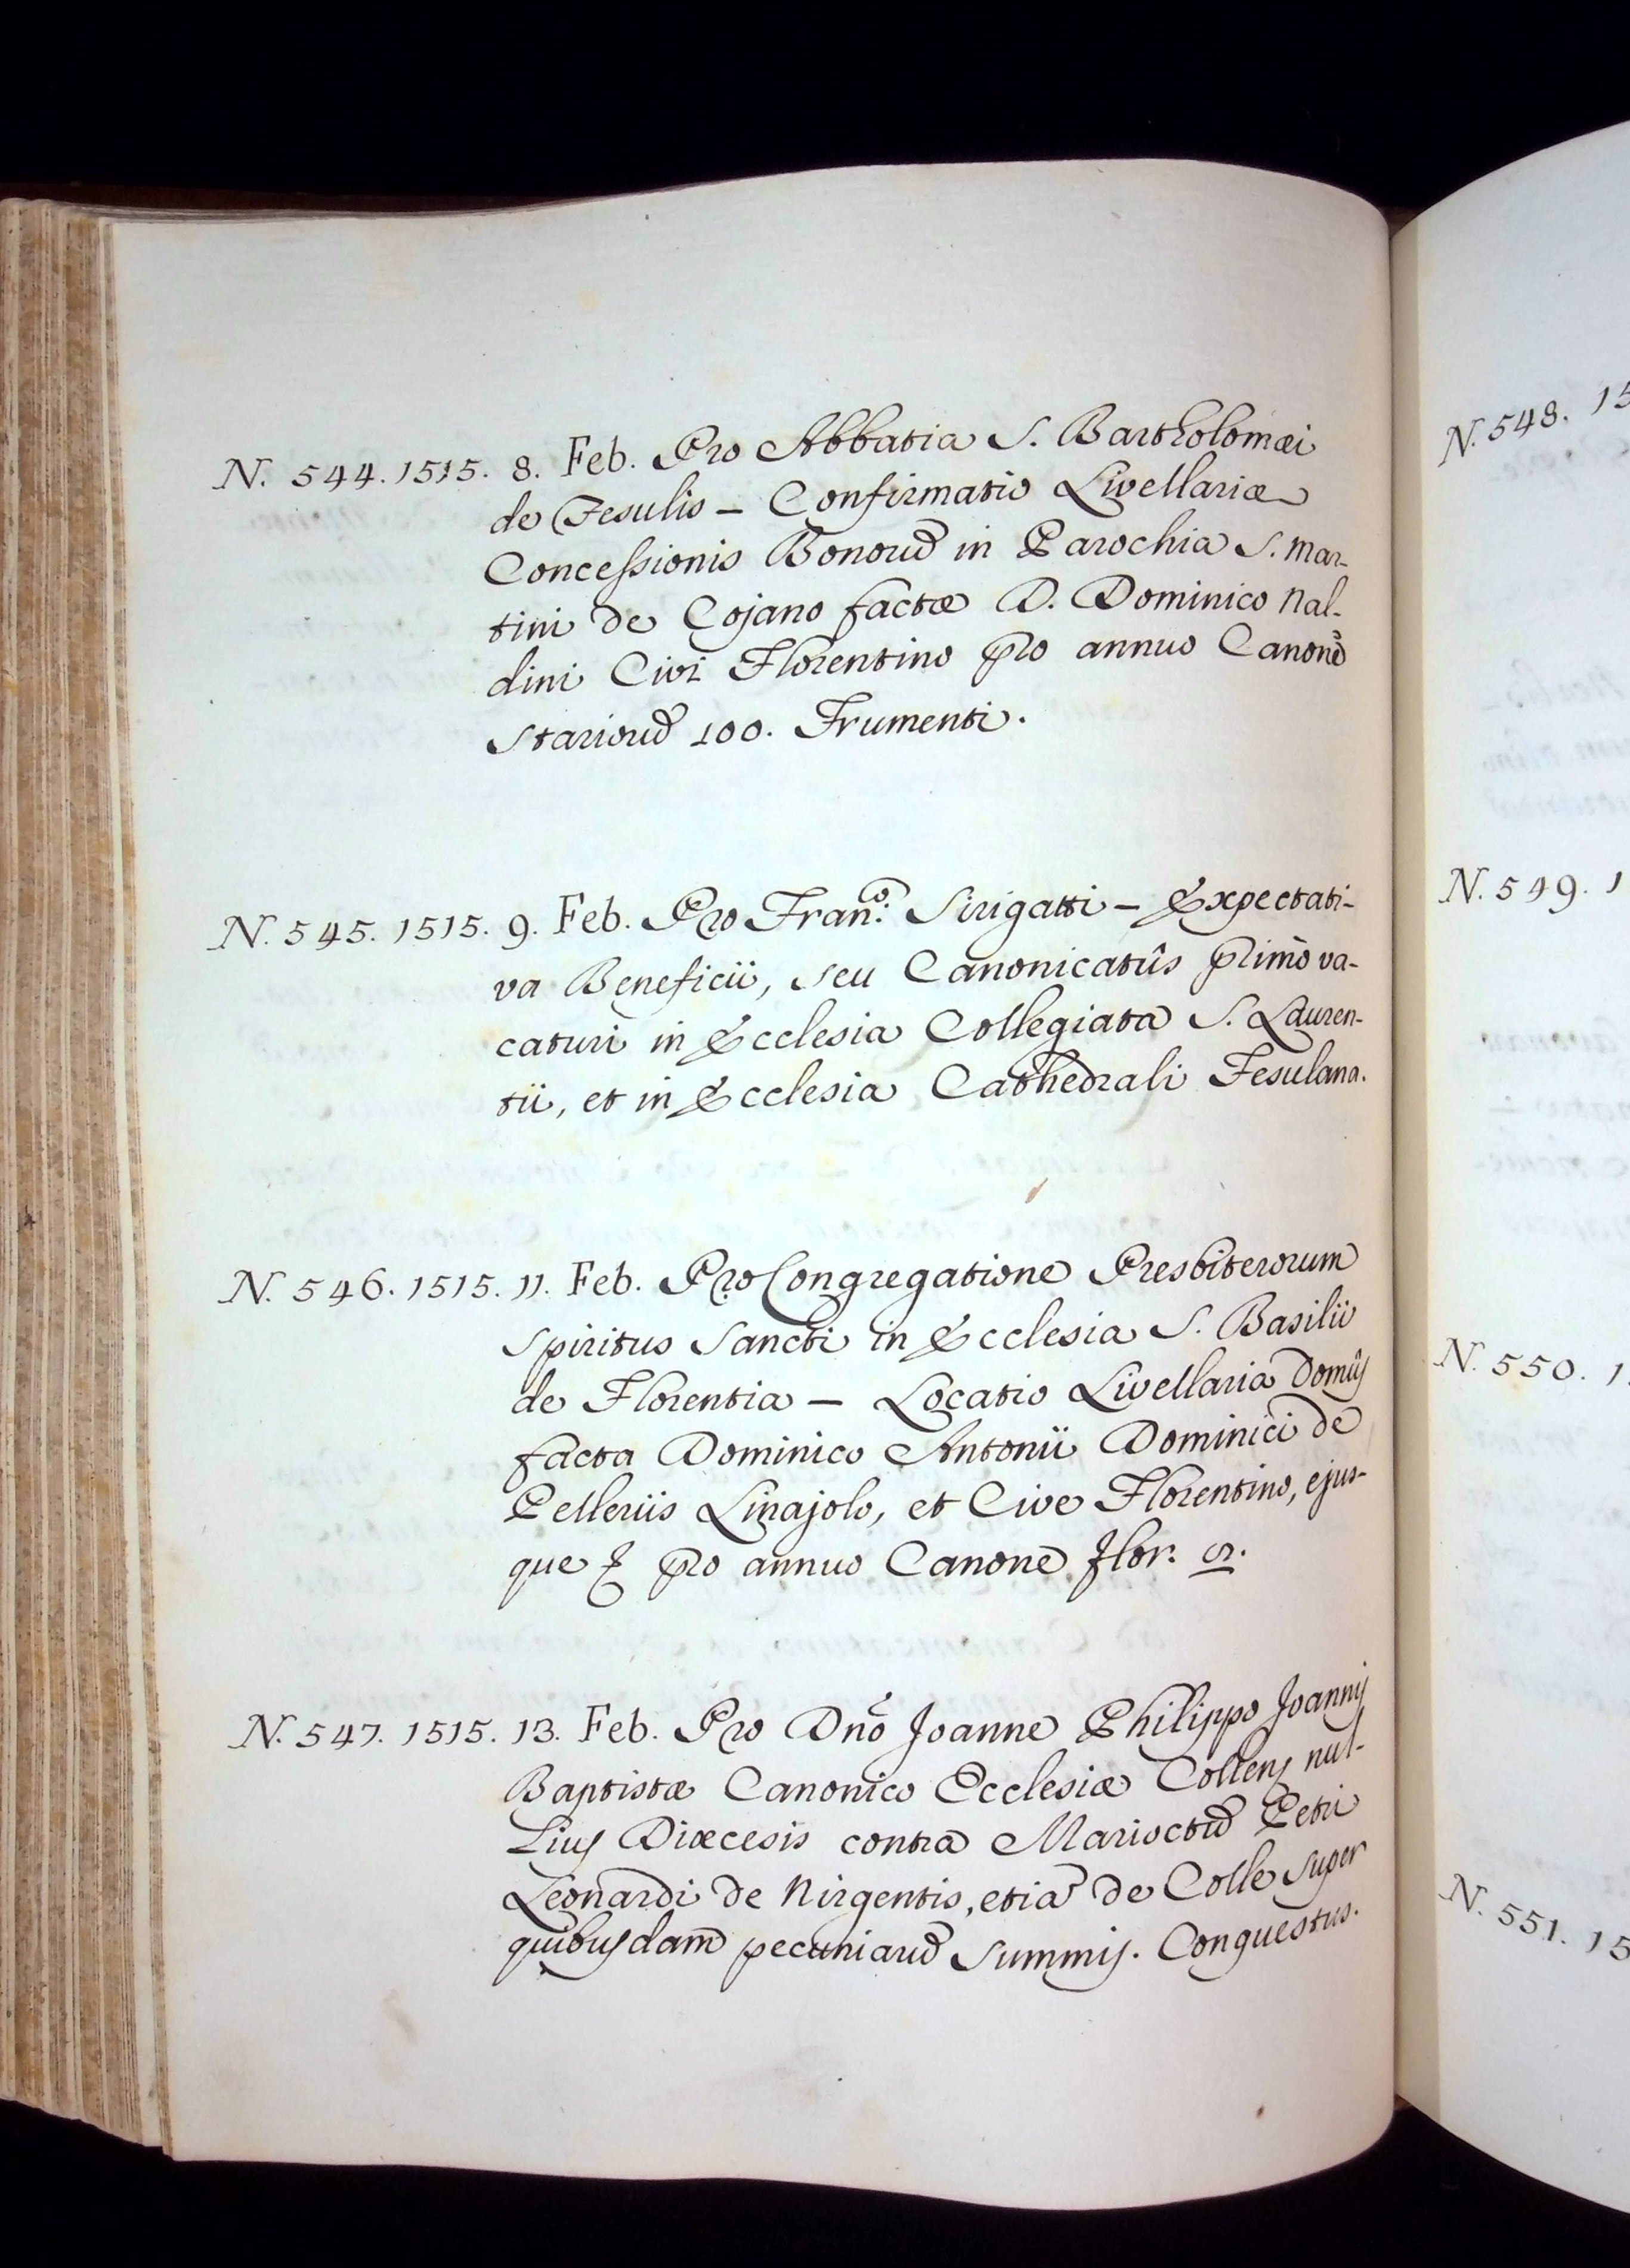 N. 544. 1515. 8. Feb. Pro Abbatia S. Bartholomæi
de Fesulis – Confirmatio Livellariæ
Concessionis Bonorũ in Parochia S. Mar-
tini de Cojano factæ D. Dominico Nal-
dini Civi Florentino pro annuo Canone
Stariorũ 100. Frumenti.
N. 545. 1515. 9. Feb. Pro Fran.co Sirigatti – Expectati-
va Beneficii, seu Canonicatûs primò va-
caturi in Ecclesia Collegiata S. Lauren-
tii, et in Ecclesia Cathedrali Fesulana.
N. 546. 1515. 11. Feb. Pro Congregatione Presbiterorum
Spiritus Sancti in Ecclesia S. Basilii
de Florentia – Locatio Livellaria Domûs
facta Dominico Antonii Dominici de
Pelleriis Linajolo, et Cive Florentino, ejus-
que pro annuo Canone flor.
N. 547. 1515. 13. Feb. Pro Dño Joanne Philippo Joannis
Baptistæ Canonico Ecclesiæ Collens nul-
lius Diœcesis contra Marioctũ Petri
Leonardi de Nirgentis, etiã de Colle super
quibusdam pecuniarũ summis. Conquestus.
N. 548. 15
N. 549. 1
N. 550. 1.
N. 551. 15